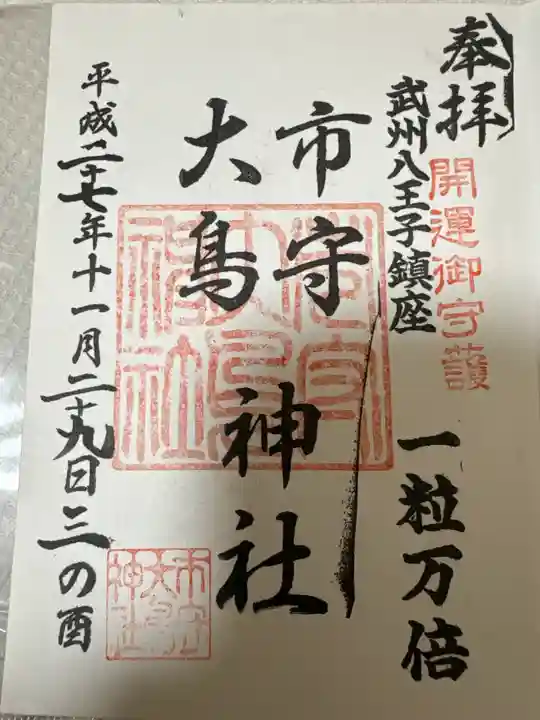 奉拝
開運御守護
武州八王子鎮座
一粒万倍
市守
大鳥
神社
平成二十七年十一月二十九日三の酉
市守
大鳥
神社